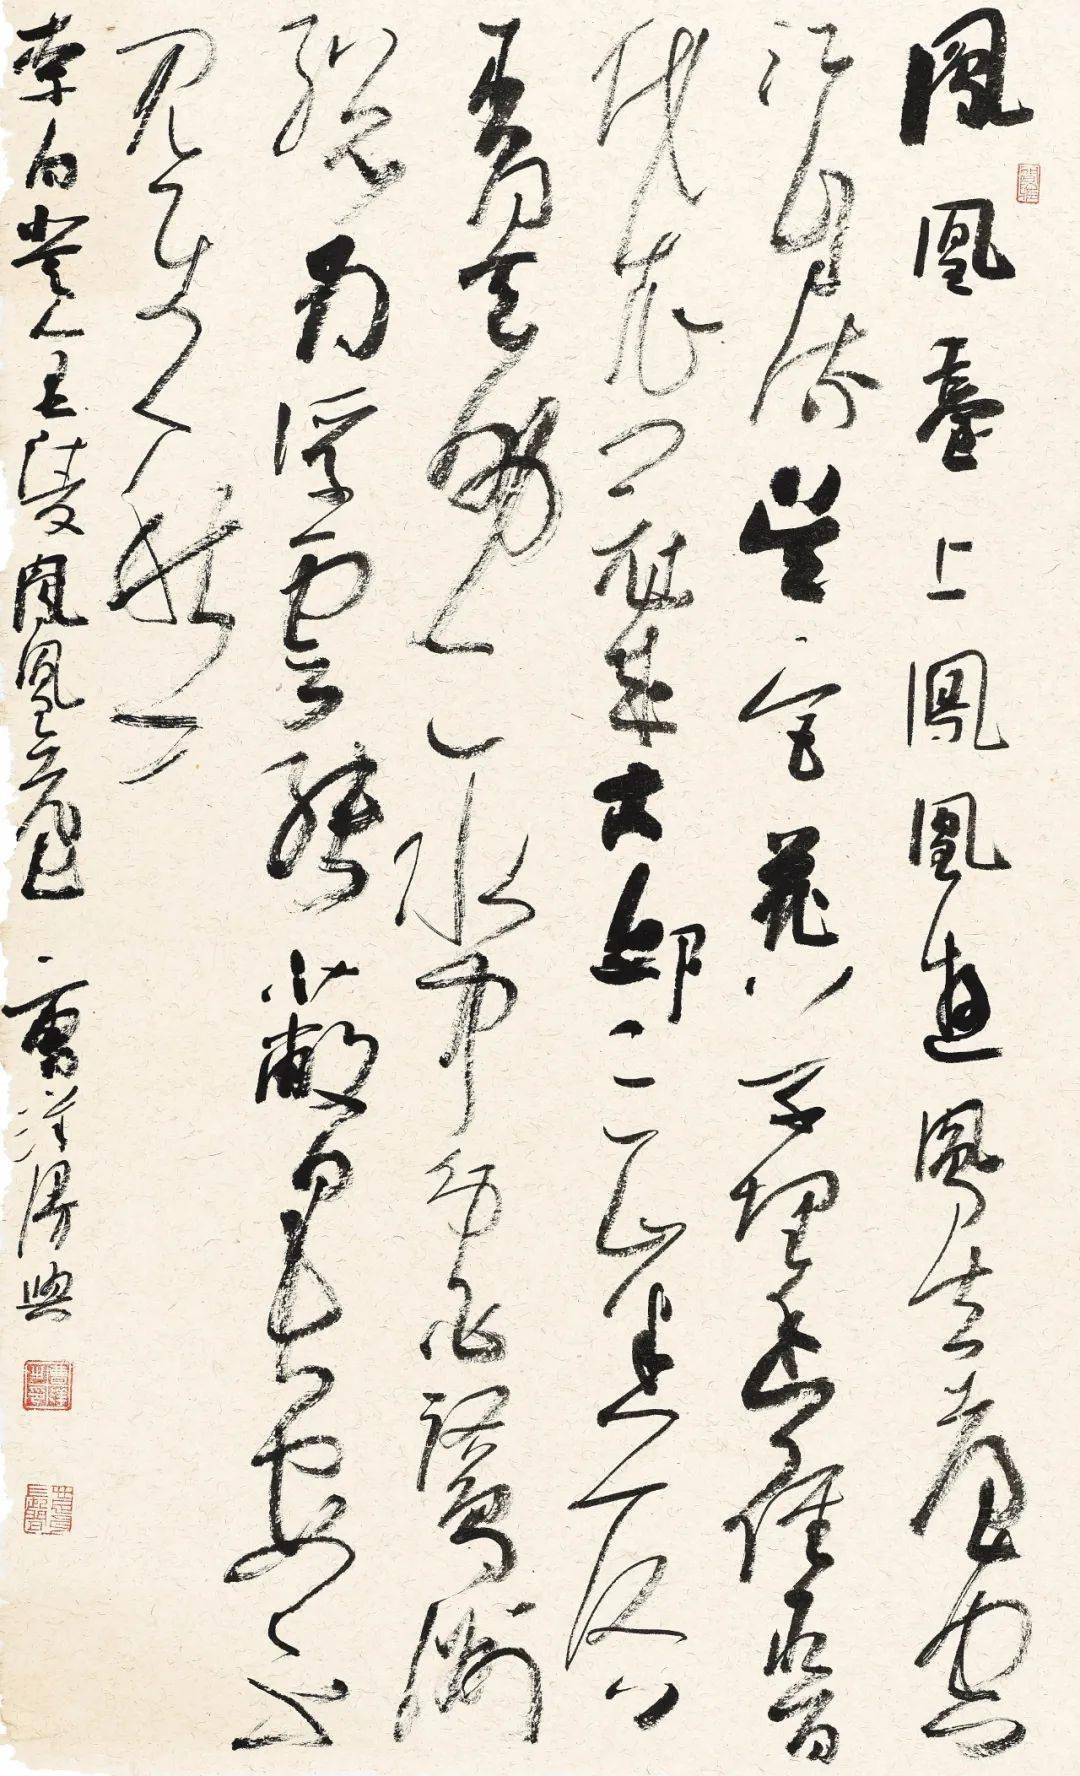 鳳凰臺上鳳凰遊鳳去臺空
江自流吳宮花草埋幽徑晉
代衣冠成古邱三山半落
青天外二水中分白鷺洲
總為浮雲能蔽日長安不
見使人愁
李白登金陵鳳凰臺 曹洋漫興